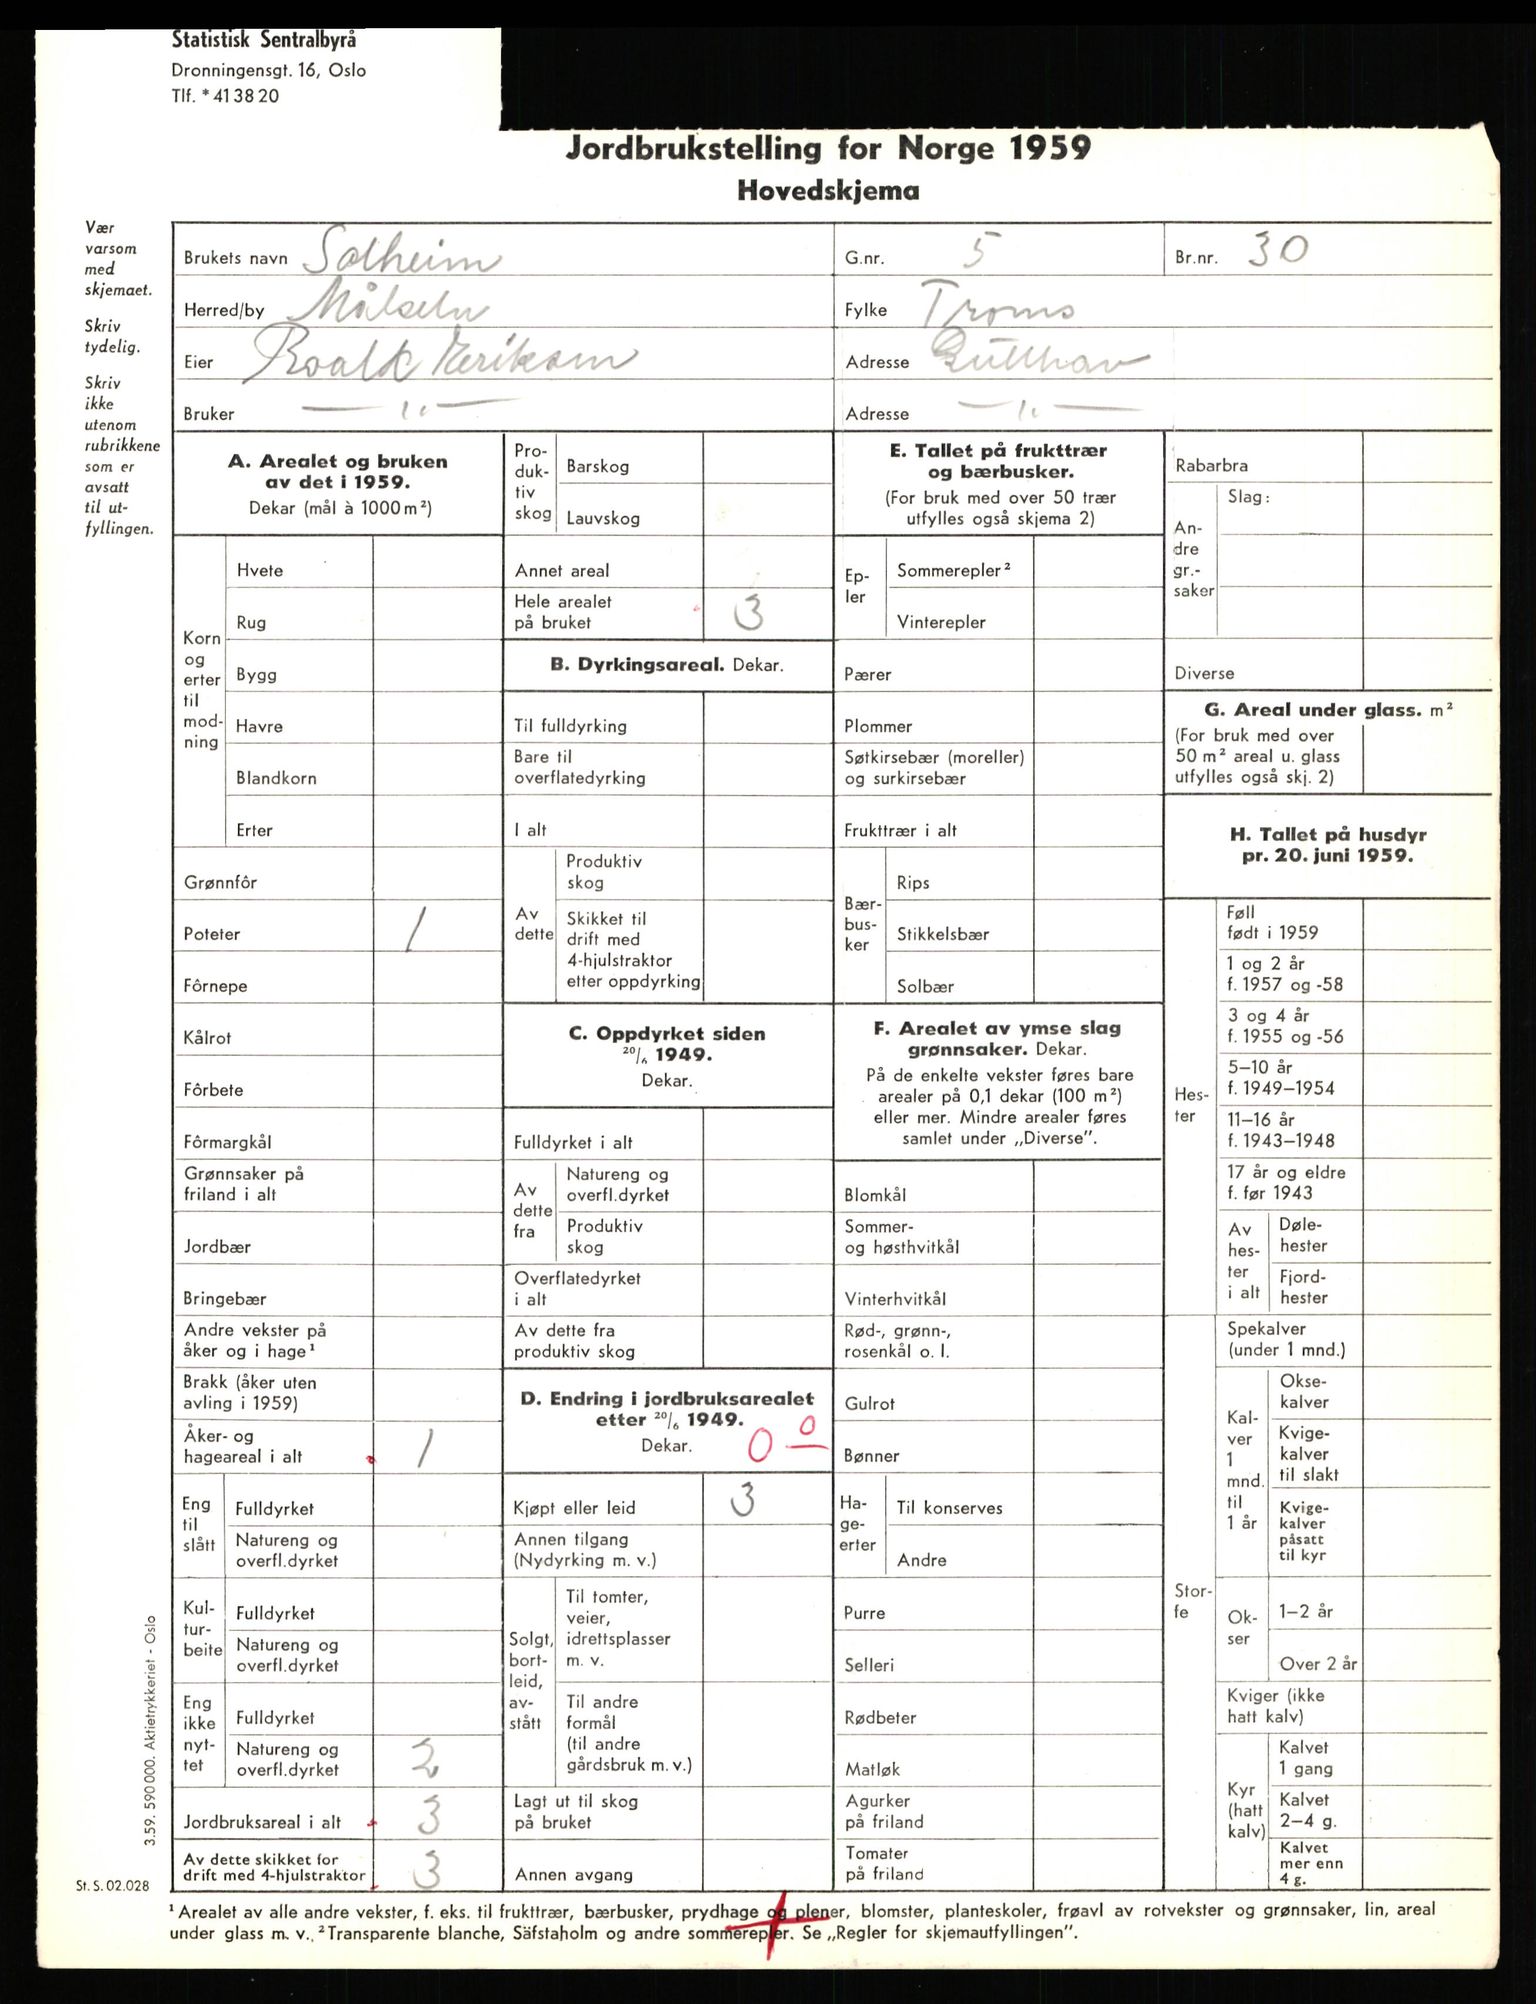 Statistisk Sentralbyrå
Dronningensgt. 16, Oslo
Tlf. * 41 38 20
Jordbrukstelling for Norge 1959
Hovedskjema
Vær
varsom
med
skjemaet.
Skriv
tydelig.
Skriv
ikke
utenom
rubrikkene
som er
avsatt
til ut-
fyllingen.
Brukets navn Solheim G.nr. 5 Br.nr. 30
Herred/by Målselv Fylke Troms
Eier Roald Eriksen Adresse Gullhav
Bruker — " — Adresse — " —
A. Arealet og bruken
av det i 1959.
Dekar (mål à 1000 m²)
Korn
og
erter
til
mod-
ning
Hvete
Rug
Bygg
Havre
Blandkorn
Erter
Grønnfôr
Poteter 1
Fôrnepe
Kålrot
Fôrbete
Fôrmargkål
Grønnsaker på
friland i alt
Jordbær
Bringebær
Andre vekster på
åker og i hage¹
Brakk (åker uten
avling i 1959)
Åker- og
hageareal i alt 1
Eng
til
slått
Fulldyrket
Natureng og
overfl.dyrket
Kul-
tur-
beite
Fulldyrket
Natureng og
overfl.dyrket
Eng
ikke
nyt-
tet
Fulldyrket
Natureng og
overfl.dyrket 2
Jordbruksareal i alt 3
Av dette skikket for
drift med 4-hjulstraktor 3
Pro-
duk-
tiv
skog
Barskog
Lauvskog
Annet areal
Hele arealet
på bruket 3
B. Dyrkingsareal. Dekar.
Til fulldyrking
Bare til
overflatedyrking
I alt
Av
dette
Produktiv
skog
Skikket til
drift med
4-hjulstraktor
etter oppdyrking
C. Oppdyrket siden
20/6 1949.
Dekar.
Fulldyrket i alt
Av
dette
fra
Natureng og
overfl.dyrket
Produktiv
skog
Overflatedyrket
i alt
Av dette fra
produktiv skog
D. Endring i jordbruksarealet
etter 20/6 1949.
Dekar. 0 0
Kjøpt eller leid 3
Annen tilgang
(Nydyrking m. v.)
Solgt,
bort-
leid,
av-
stått
Til tomter,
veier,
idrettsplasser
m. v.
Til andre
formål
(til andre
gårdsbruk m. v.)
Lagt ut til skog
på bruket
Annen avgang
E. Tallet på frukttrær
og bærbusker.
(For bruk med over 50 trær
utfylles også skjema 2)
Ep-
ler
Sommerepler²
Vinterepler
Pærer
Plommer
Søtkirsebær (moreller)
og surkirsebær
Frukttrær i alt
Bær-
bus-
ker
Rips
Stikkelsbær
Solbær
F. Arealet av ymse slag
grønnsaker. Dekar.
På de enkelte vekster føres bare
arealer på 0,1 dekar (100 m²)
eller mer. Mindre arealer føres
samlet under „Diverse”.
Blomkål
Sommer-
og høsthvitkål
Vinterhvitkål
Rød-, grønn-,
rosenkål o. l.
Gulrot
Bønner
Ha-
ge-
erter
Til konserves
Andre
Purre
Selleri
Rødbeter
Matløk
Agurker
på friland
Tomater
på friland
Rabarbra
An-
dre
gr.-
saker
Slag:
Diverse
G. Areal under glass. m²
(For bruk med over
50 m² areal u. glass
utfylles også skj. 2)
H. Tallet på husdyr
pr. 20. juni 1959.
Hes-
ter
Føll
født i 1959
1 og 2 år
f. 1957 og -58
3 og 4 år
f. 1955 og -56
5–10 år
f. 1949–1954
11–16 år
f. 1943–1948
17 år og eldre
f. før 1943
Av
hes-
ter
i alt
Døle-
hester
Fjord-
hester
Stor-
fe
Spekalver
(under 1 mnd.)
Kal-
ver
1
mnd.
til
1 år
Okse-
kalver
Kvige-
kalver
til slakt
Kvige-
kalver
påsatt
til kyr
Ok-
ser
1–2 år
Over 2 år
Kviger (ikke
hatt kalv)
Kyr
(hatt
kalv)
Kalvet
1 gang
Kalvet
2–4 g.
Kalvet
mer enn
4 g.
3.59. 590 000. Aktietrykkeriet - Oslo
St. S. 02.028
¹ Arealet av alle andre vekster, f. eks. til frukttrær, bærbusker, prydhage og plener, blomster, planteskoler, frøavl av rotvekster og grønnsaker, lin, areal
under glass m. v. ² Transparente blanche, Säfstaholm og andre sommerepler. Se „Regler for skjemautfyllingen”.